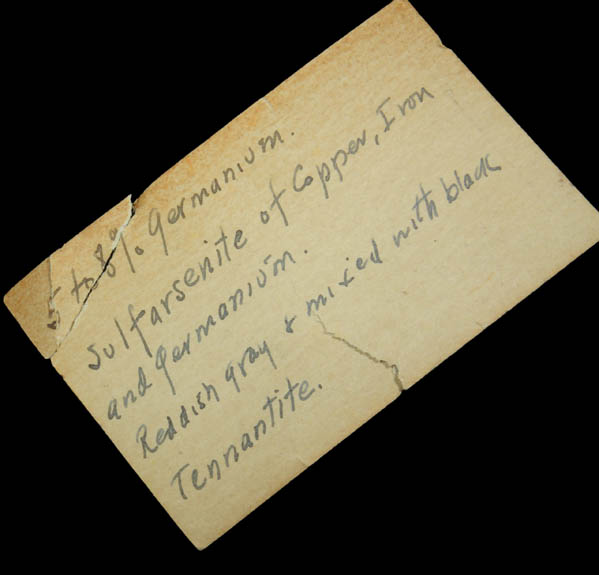 5 to 8%. Germanium.
Sulfarsenite of Copper, Iron
and Germanium.
Reddish gray & mixed with black
Tennantite.